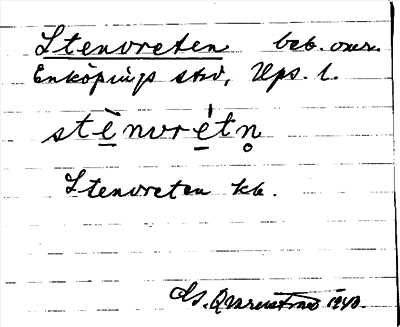 Stenvreten beb. omr.
Enköpings stad, Ups. l.
stènvrétn̥
Stenvreten kb.
1940